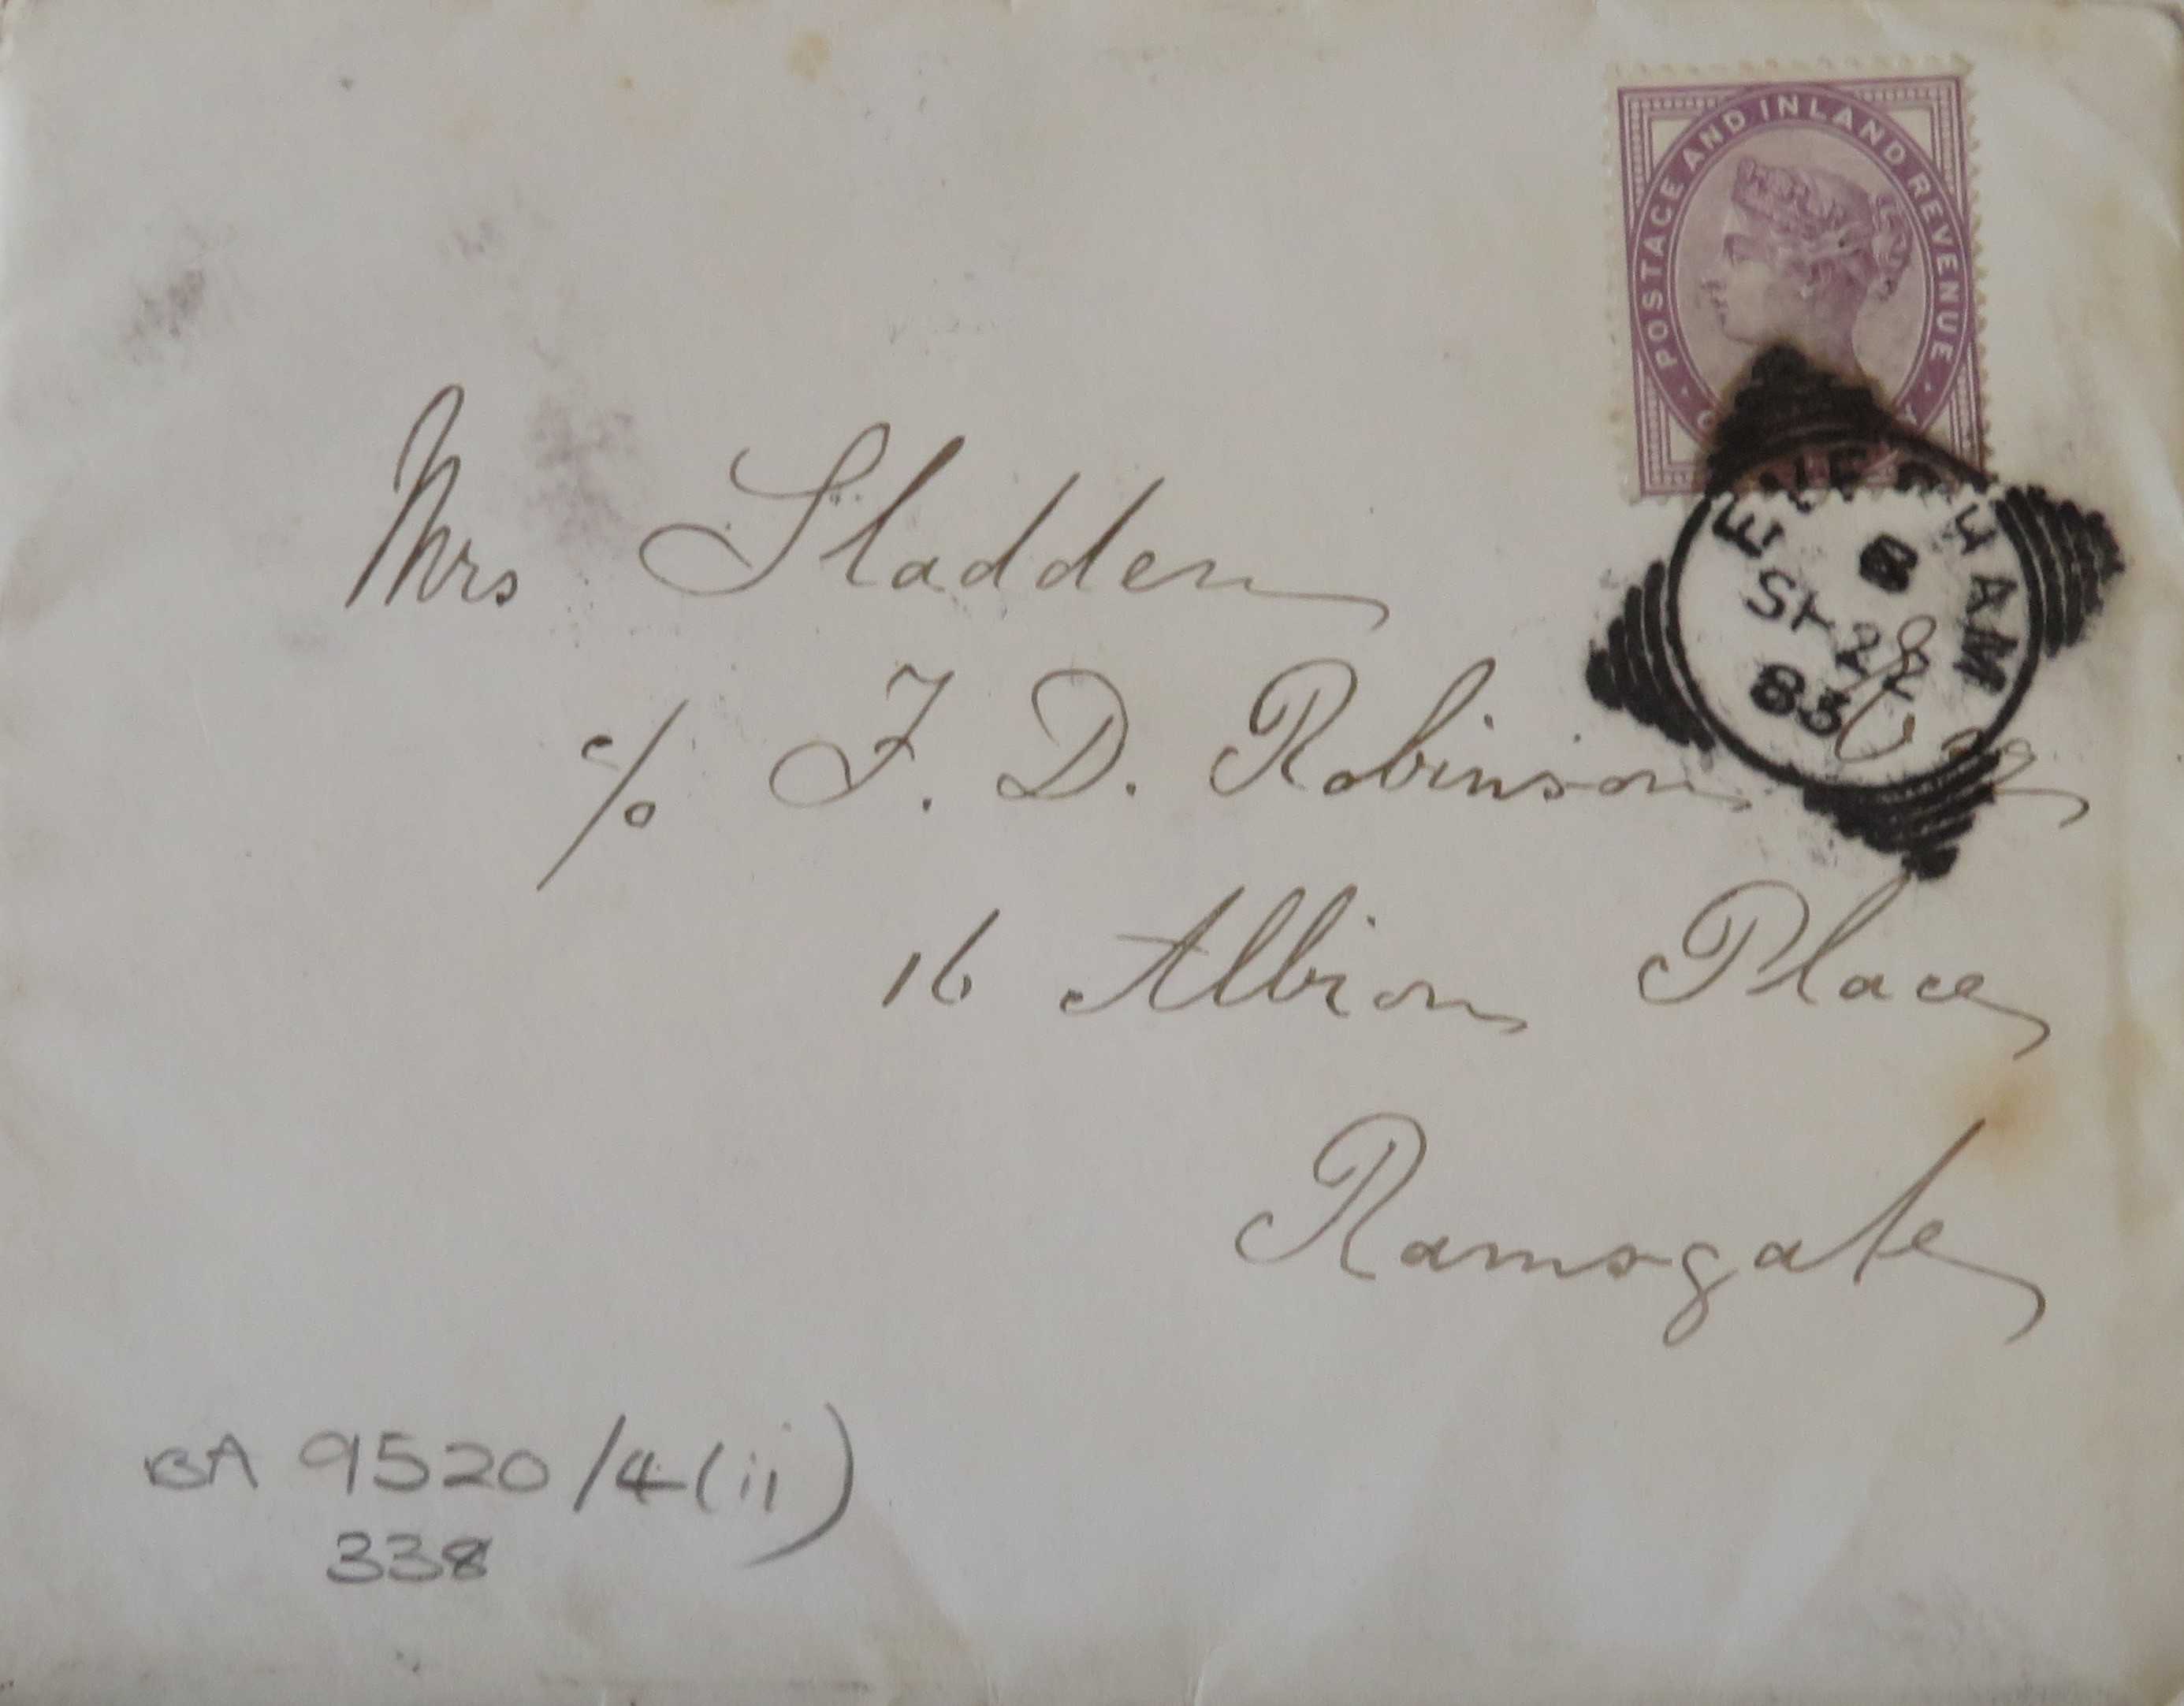 POSTAGE AND INLAND REVENUE
EVESHAM
B
SP 22
83
Mrs Sladden
c/o F. D. Robinson Esq
16 Albion Place
Ramsgate
BA 9520/4(ii)
338